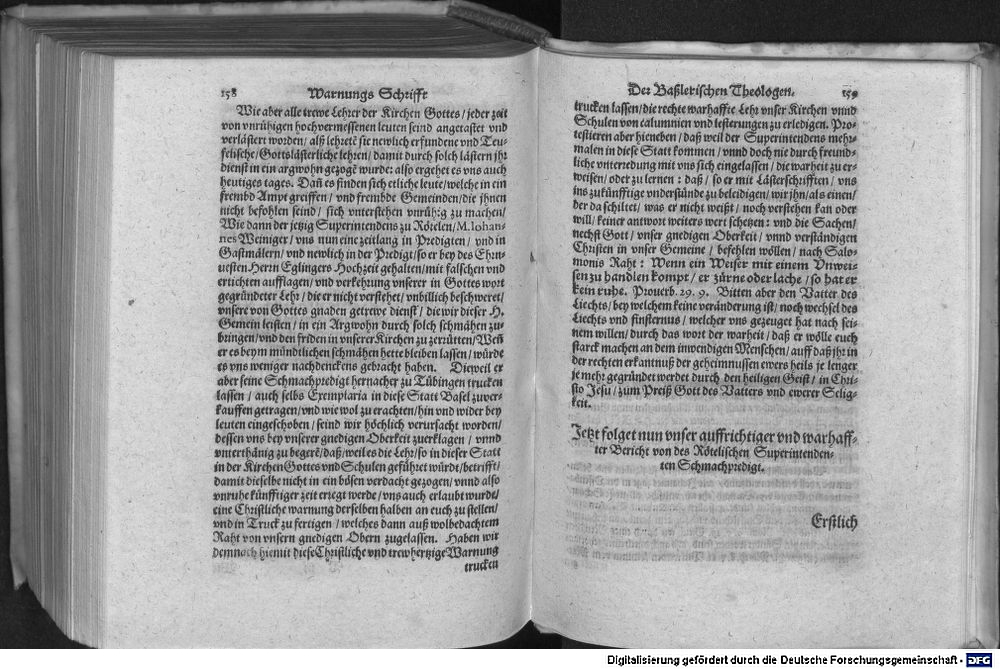 158 Warnungs Schrifft
Wie aber alle trewe Lehrer der Kirchen Gottes / jeder zeit
von vnrühigen hochvermessenen leuten seind angetastet vnd
verlästert worden / alß lehretē sie newlich erfundene vnd Teu-
felische / Gottslästerliche lehren / damit durch solch lästern jhr
dienst in ein argwohn gezogē wurde: also ergehet es vns auch
heutiges tages. Dañ es finden sich etliche leute / welche in ein
frembd Ampt greiffen / vnd frembde Gemeinden / die jhnen
nicht befohlen seind / sich vnterstehen vnrühig zu machen /
Wie dann der jetzig Superintendens zu Rötelen / M. Iohan-
nes Weiniger / vns nun eine zeitlang in Predigten / vnd in
Gastmälern / vnd newlich in der Predigt / so er bey des Ehrn-
uesten Herrn Eglingers Hochzeit gehalten / mit falschen vnd
ertichten aufflagen / vnd verkehrung vnserer in Gottes wort
gegründeter Lehr / die er nicht verstehet / vnbillich beschweret /
vnsere von Gottes gnaden getrewe dienst / die wir dieser H.
Gemein leisten / in ein Argwohn durch solch schmähen zu-
bringen / vnd den friden in vnserer Kirchen zu zerrütten / Weñ
er es beym mündtlichen schmähen hette bleiben lassen / würde
es vns weniger nachdenckens gebracht haben. Dieweil er
aber seine Schmachpredigt hernacher zu Tübingen trucken
lassen / auch selbs Exemplaria in diese Statt Basel zuver-
kauffen getragen / vnd wie wol zu erachten / hin vnd wider bey
leuten eingeschoben / seind wir höchlich verursacht worden /
dessen vns bey vnserer gnedigen Oberkeit zuerklagen / vnnd
vnterthänig zu begerē / daß / weil es die Lehr / so in dieser Statt
in der Kirchen Gottes vnd Schulen geführet würdt / betrifft /
damit dieselbe nicht in ein bösen verdacht gezogen / vnnd also
vnruhe künfftiger zeit erregt werde / vns auch erlaubt wurde /
eine Christliche warnung derselben halben an euch zu stellen /
vnd in Truck zu fertigen / welches dann auß wolbedachtem
Raht von vnsern gnedigen Obern zugelassen. Haben wir
demnach hiemit diese Christliche vnd trewhertzige Warnung
trucken
Der Baßlerischen Theologen. 159
trucken lassen / die rechte warhaffte Lehr vnser Kirchen vnnd
Schulen von calumnien vnd lesterungen zu erledigen. Pro-
testieren aber hieneben / daß weil der Superintendens mehr-
malen in diese Statt kommen / vnnd doch nie durch freund-
liche vnterredung mit vns sich eingelassen / die warheit zu er-
weisen / oder zu lernen: daß / so er mit Lästerschrifften / vns
ins zukünfftige vnderstünde zu beleidigen / wir jhn / als einen /
der da schiltet / was er nicht weißt / noch verstehen kan oder
will / keiner antwort weiters wert schetzen: vnd die Sachen /
nechst Gott / vnser gnedigen Oberkeit / vnnd verständigen
Christen in vnser Gemeine / befehlen wöllen / nach Salo-
monis Raht: Wenn ein Weiser mit einem Vnwei-
sen zu handlen kompt / er zürne oder lache / so hat er
kein ruhe. Prouerb. 29. 9. Bitten aber den Vatter des
Liechts / bey welchem keine veränderung ist / noch wechsel des
Liechts vnd finsternus / welcher vns gezeuget hat nach sei-
nem willen / durch das wort der warheit / daß er wölle euch
starck machen an dem inwendigen Menschen / auff daß jhr in
der rechten erkantnuß der geheimnussen ewers heils je lenger
je mehr gegründet werdet durch den heiligen Geist / in Chri-
sto Jesu / zum Preiß Gott des Vatters vnd ewerer Selig-
keit.
Jetzt folget nun vnser auffrichtiger vnd warhaff-
ter Bericht von des Rötelischen Superintenden-
ten Schmachpredigt.
Erstlich
Digitalisierung gefördert durch die Deutsche Forschungsgemeinschaft - DFG